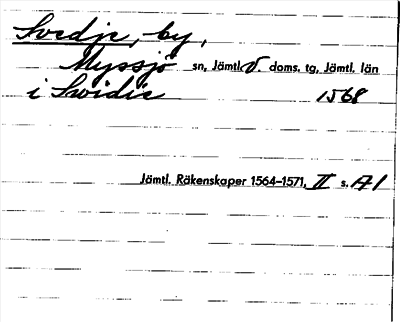 Svedje, by,
Myssjö sn, Jämtl. V. doms. tg, Jämtl. län
i Swidie 1568
Jämtl. Räkenskaper 1564–1571, II s. 171